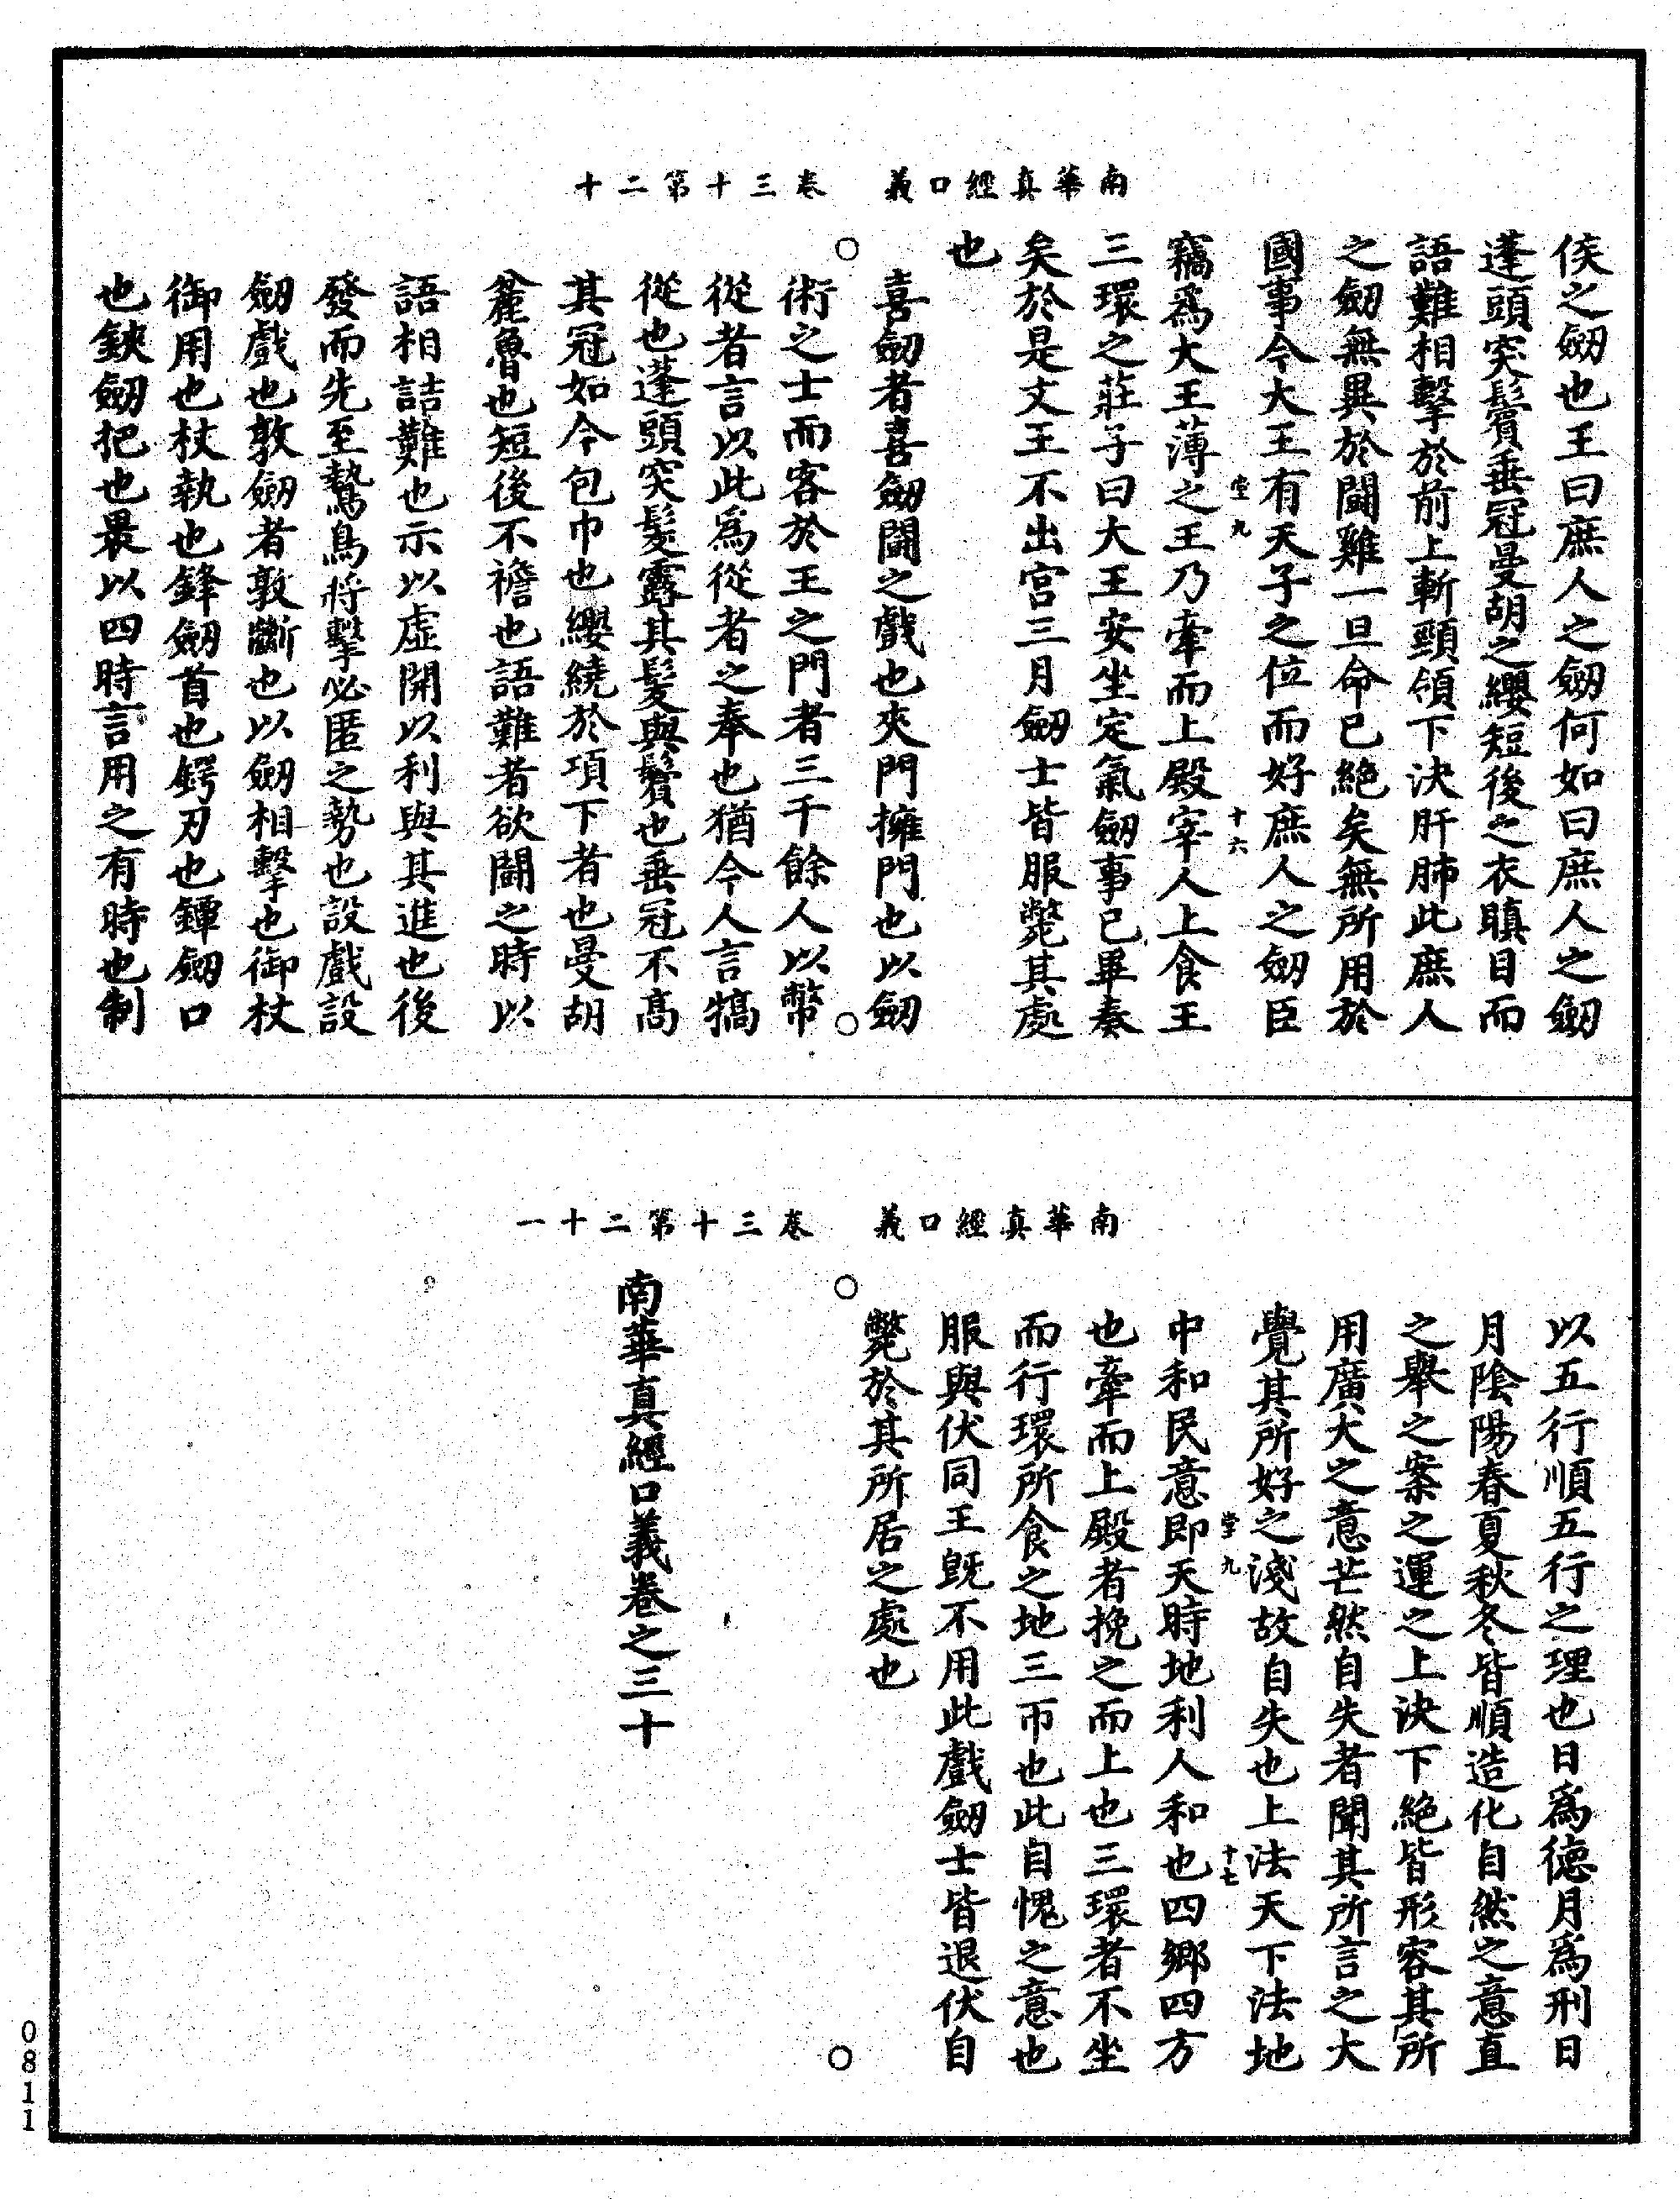 南華真經口義　卷三十第二十
侯之劒也王曰庶人之劒何如曰庶人之劒
蓬頭突鬢垂冠曼胡之纓短後之衣瞋目而
語難相擊於前上斬頸領下決肝肺此庶人
之劒無異於鬪雞一旦命已絶矣無所用於
國事今大王有天子之位而好庶人之劒臣
堂九　十六
竊爲大王薄之王乃牽而上殿宰人上食王
三環之莊子曰大王安坐定氣劒事已畢奏
矣於是文王不出宫三月劒士皆服斃其處
也
喜劒者喜劒鬪之戲也夾門擁門也以劒
術之士而客於王之門者三千餘人以幣
從者言以此爲從者之奉也猶今人言犒
從也蓬頭突髮露其髮與鬢也垂冠不髙
其冠如今包巾也纓繞於項下者也曼胡
麄魯也短後不襜也語難者欲鬪之時以
語相詰難也示以虚開以利與其進也後
發而先至鷙鳥將擊必匿之勢也設戲設
劒戲也敦劒者敦斷也以劒相擊也御杖
御用也杖執也鋒劒首也鍔刃也鐔劒口
也鋏劒把也裹以四時言用之有時也制
南華真經口義　卷三十第二十一
以五行順五行之理也日爲徳月爲刑日
月隂陽春夏秋冬皆順造化自然之意直
之舉之案之運之上決下絶皆形容其所
用廣大之意芒然自失者聞其所言之大
覺其所好之淺故自失也上法天下法地
堂九　十七
中和民意即天時地利人和也四鄉四方
也牽而上殿者挽之而上也三環者不坐
而行環所食之地三帀也此自愧之意也
服與伏同王旣不用此戲劒士皆退伏自
斃於其所居之處也
南華真經口義卷之三十
0811